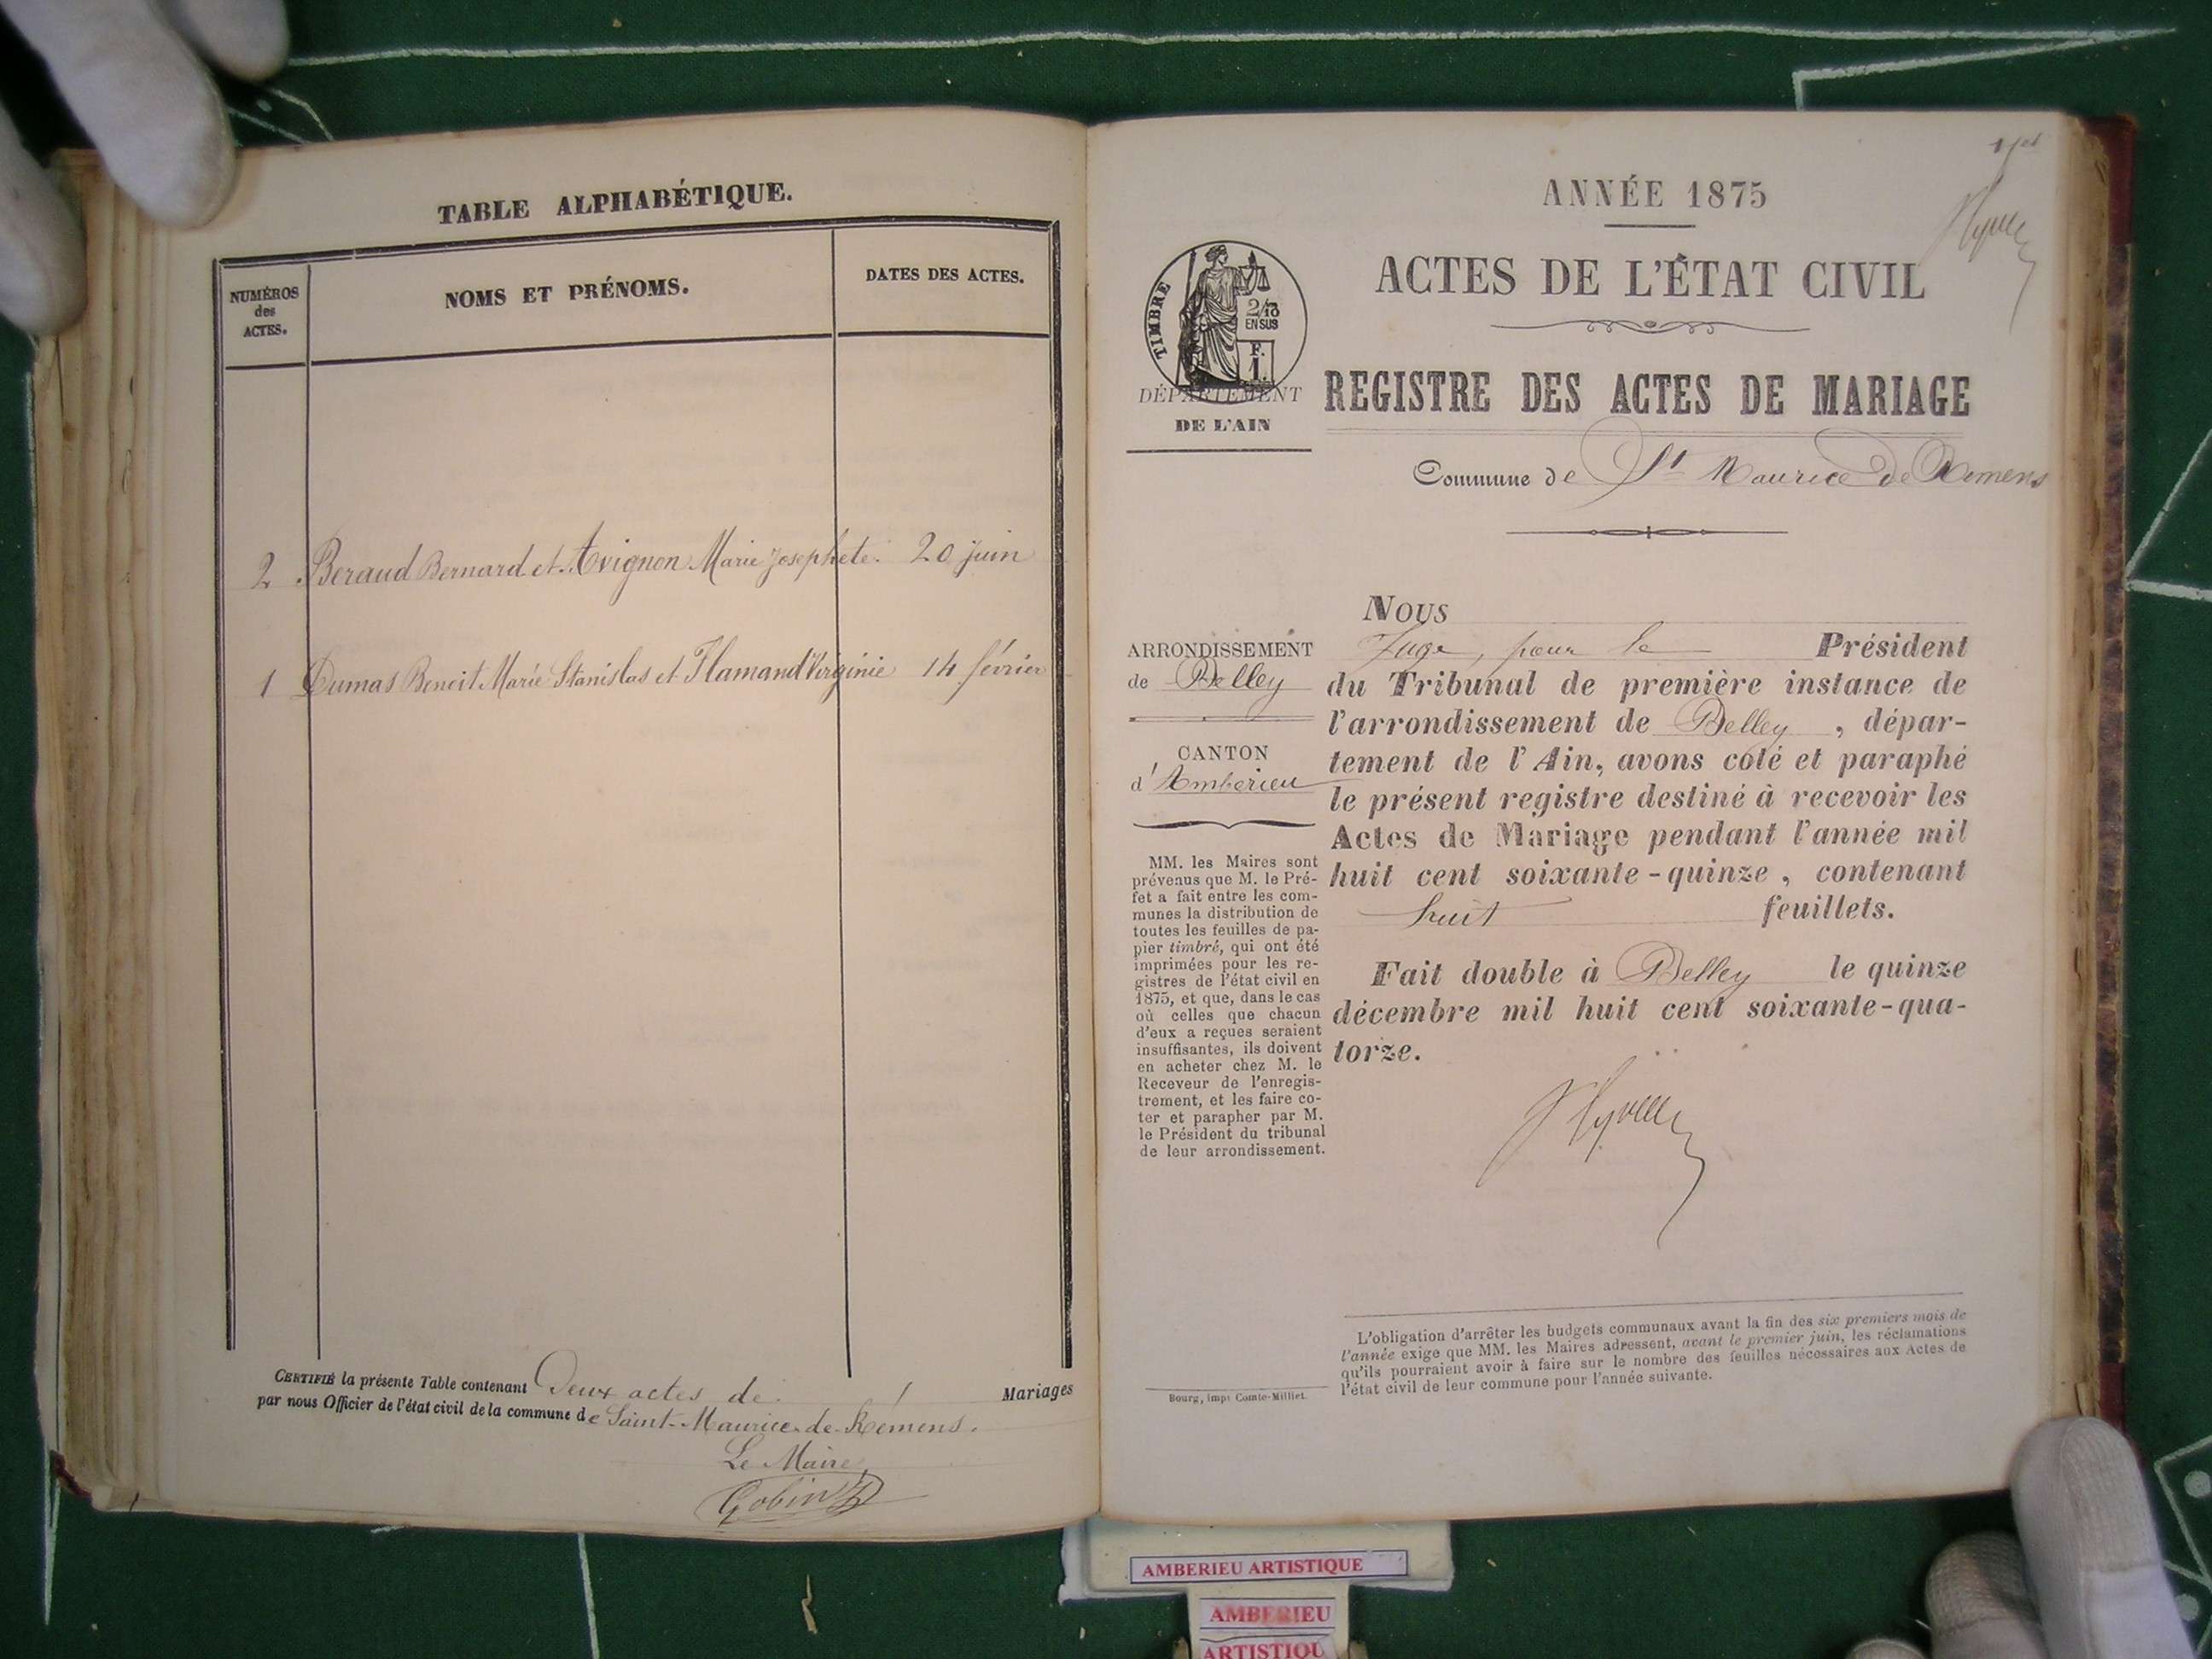 TABLE ALPHABÉTIQUE.
NUMÉROS
des
ACTES.
NOMS ET PRÉNOMS.
DATES DES ACTES.
2 Beraud Bernard et Avignon Marie Josephete. 20 juin
1 Dumas Benoit Marie Stanislas et Flamand Virginie 14 février
CERTIFIÉ la présente Table contenant Deux actes de Mariages
par nous Officier de l'état civil de la commune de Saint-Maurice-de-Rémens.
Le Maire,
Gobin
1er
ANNÉE 1875
ACTES DE L'ÉTAT CIVIL
TIMBRE
2/10
EN SUS
F.
1.
DÉPARTEMENT
DE L'AIN
REGISTRE DES ACTES DE MARIAGE
Commune de St Maurice de Remens
ARRONDISSEMENT
de Belley
CANTON
d'Amberieu
MM. les Maires sont
prévenus que M. le Pré-
fet a fait entre les com-
munes la distribution de
toutes les feuilles de pa-
pier timbré, qui ont été
imprimées pour les re-
gistres de l'état civil en
1875, et que, dans le cas
où celles que chacun
d'eux a reçues seraient
insuffisantes, ils doivent
en acheter chez M. le
Receveur de l'enregis-
trement, et les faire co-
ter et parapher par M.
le Président du tribunal
de leur arrondissement.
Nous
Juge, pour le Président
du Tribunal de première instance de
l'arrondissement de Belley, dépar-
tement de l'Ain, avons coté et paraphé
le présent registre destiné à recevoir les
Actes de Mariage pendant l'année mil
huit cent soixante-quinze, contenant
huit feuillets.
Fait double à Belley le quinze
décembre mil huit cent soixante-qua-
torze.
L'obligation d'arrêter les budgets communaux avant la fin des six premiers mois de
l'année exige que MM. les Maires adressent, avant le premier juin, les réclamations
qu'ils pourraient avoir à faire sur le nombre des feuilles nécessaires aux Actes de
l'état civil de leur commune pour l'année suivante.
Bourg, imp. Comte-Milliet.
AMBERIEU ARTISTIQUE
AMBERIEU
ARTISTIQU